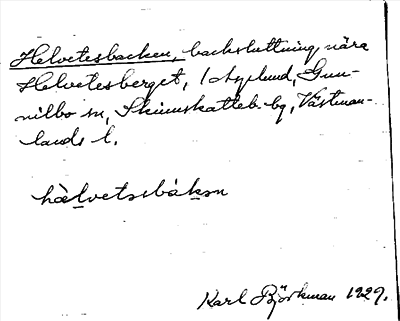 Helvetesbacken, backsluttning nära
Helvetesberget, 1 Asplund, Gun-
nilbo sn, Skinnskatteb. bg, Västman-
lands l.
hælvetsebákən
Karl Björkman 1929.